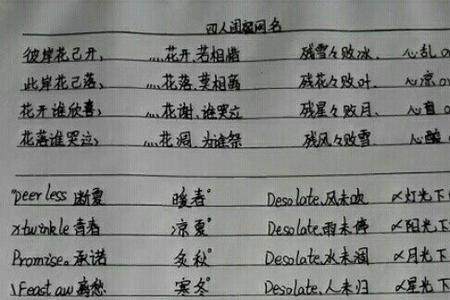 四人闺蜜网名
彼岸花已开、 灬花开、若相惜 残雪々败冰、 心乱
此岸花已落、 灬花落、莫相离 残花々败叶、 心凉
花开谁欣喜; 灬花谢、谁哭泣 残星々败月、 心
花落谁哭泣; 灬花凋、为谁祭 残风々败雪 心酸
peerless 断夏 暖春° Desolate、风未吹 〆灯光下
twinkle 青春 凉夏° Desolate、雨未停 〆阳光下
Promise。承诺 冬秋° Desolate、水未涸 〆月光下
Feast aw 离愁 寒冬° Desolate、人未归 〆星光下